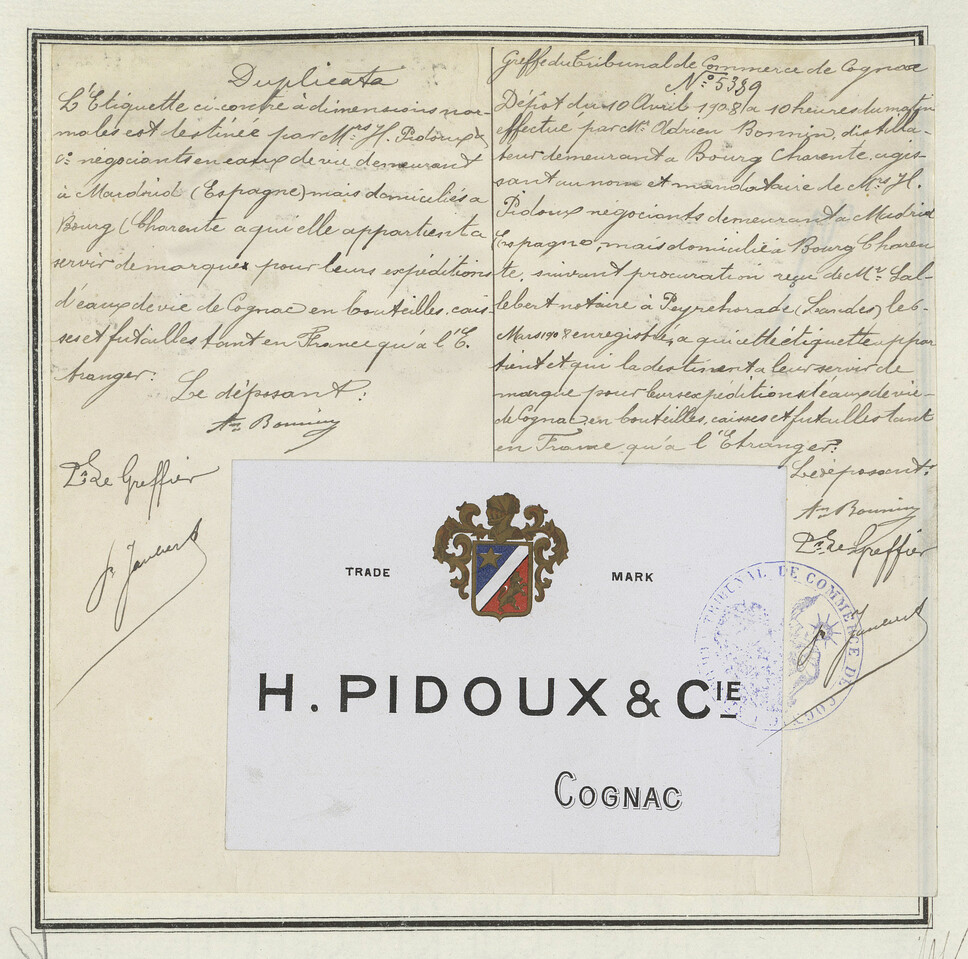 Duplicata
L'Etiquette ci-contre à dimensions nor-
males est destinée par Mrs H. Pidoux &
Cie négociants en eaux de vie demeurant
à Madrid (Espagne) mais domiciliés a
Bourg Charente a qui elle appartient a
servir de marque pour leurs expéditions
d'eaux de vie de Cognac en bouteilles, cais-
ses et futailles tant en France qu'à l'E-
tranger.
Le déposant:
An Bonnin
Le Greffier
Greffe du Tribunal de Commerce de Cognac
No 5389
Dépôt du 10 Avril 1908 a 10 heures du matin
effectué par Mr Adrien Bonnin, distilla-
teur demeurant a Bourg Charente, agis-
sant au nom et mandataire de Mrs H.
Pidoux négociants demeurant a Madrid
Espagne, mais domicilié à Bourg Charen
te, suivant procuration reçu de Mr Lal-
lebert notaire à Peyrehorade (Landes) le 6-
Mars 1908 enregistrée, a qui cette étiquette appar
tient et qui la destinent a leur servir de
marque pour leurs expéditions d'eaux de vie-
de Cognac, en bouteilles, caisses et futailles tant
en France qu'a l'Etranger.
Le déposant:
An Bonnin
Le Greffier
TRADE MARK
H. PIDOUX & CIE
COGNAC
TRIBUNAL DE COMMERCE DE COGNAC